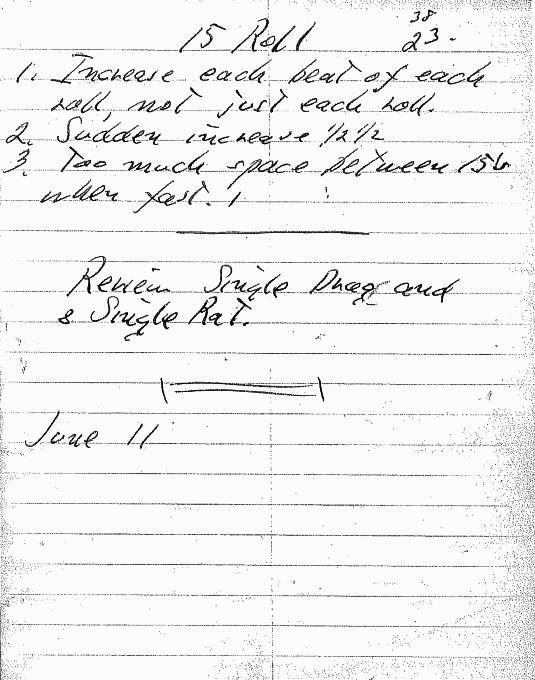 38
15 Roll 23.
1. Increase each beat of each
roll, not just each roll.
2. Sudden increase 1/2 1/2
3. Too much space between 15s
when fast.
Review Single Drag and
& Single Rat.
June 11